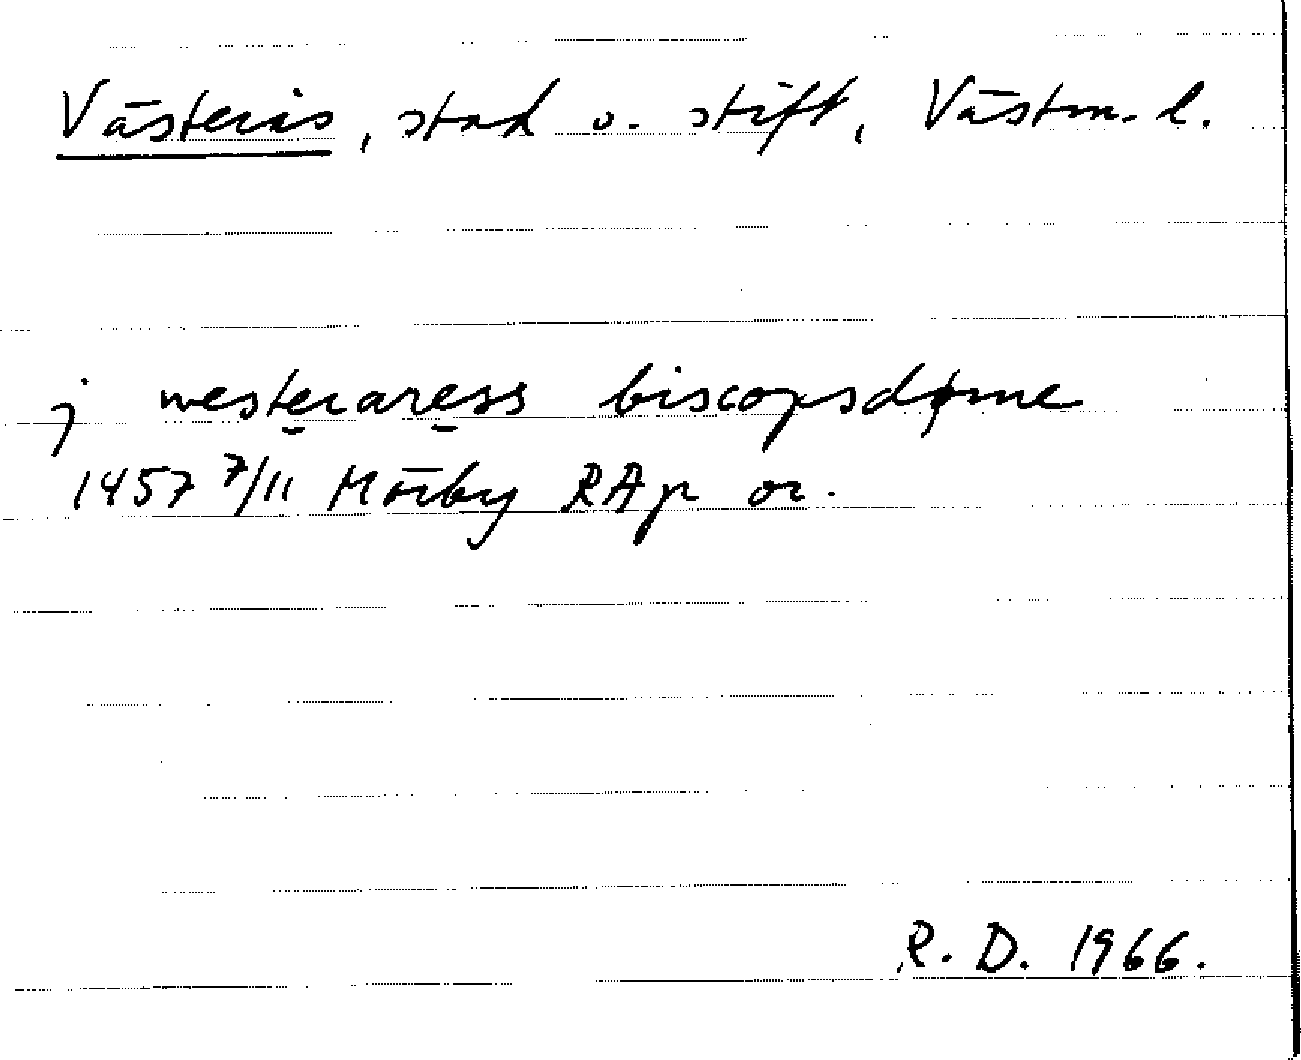 Västerås, stad o. stift, Västm. l.
j westeraress biscopsdøme
1457 7/11 Mörby RAp or.
R. D. 1966.